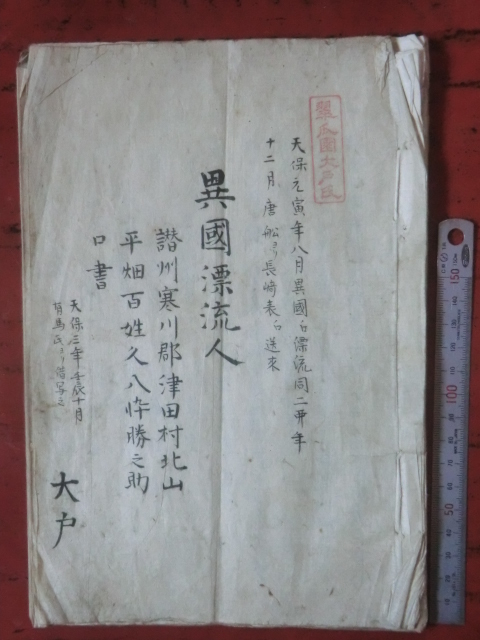 天保元寅年八月異國江漂流同二卯年
十二月唐船ゟ長崎表江送来
異國漂流人
讃州寒川郡津田村北山
平畑百姓久八忰勝之助
口書
天保三年壬辰十月
有馬氏ゟ借写之
大戸
50
100
150